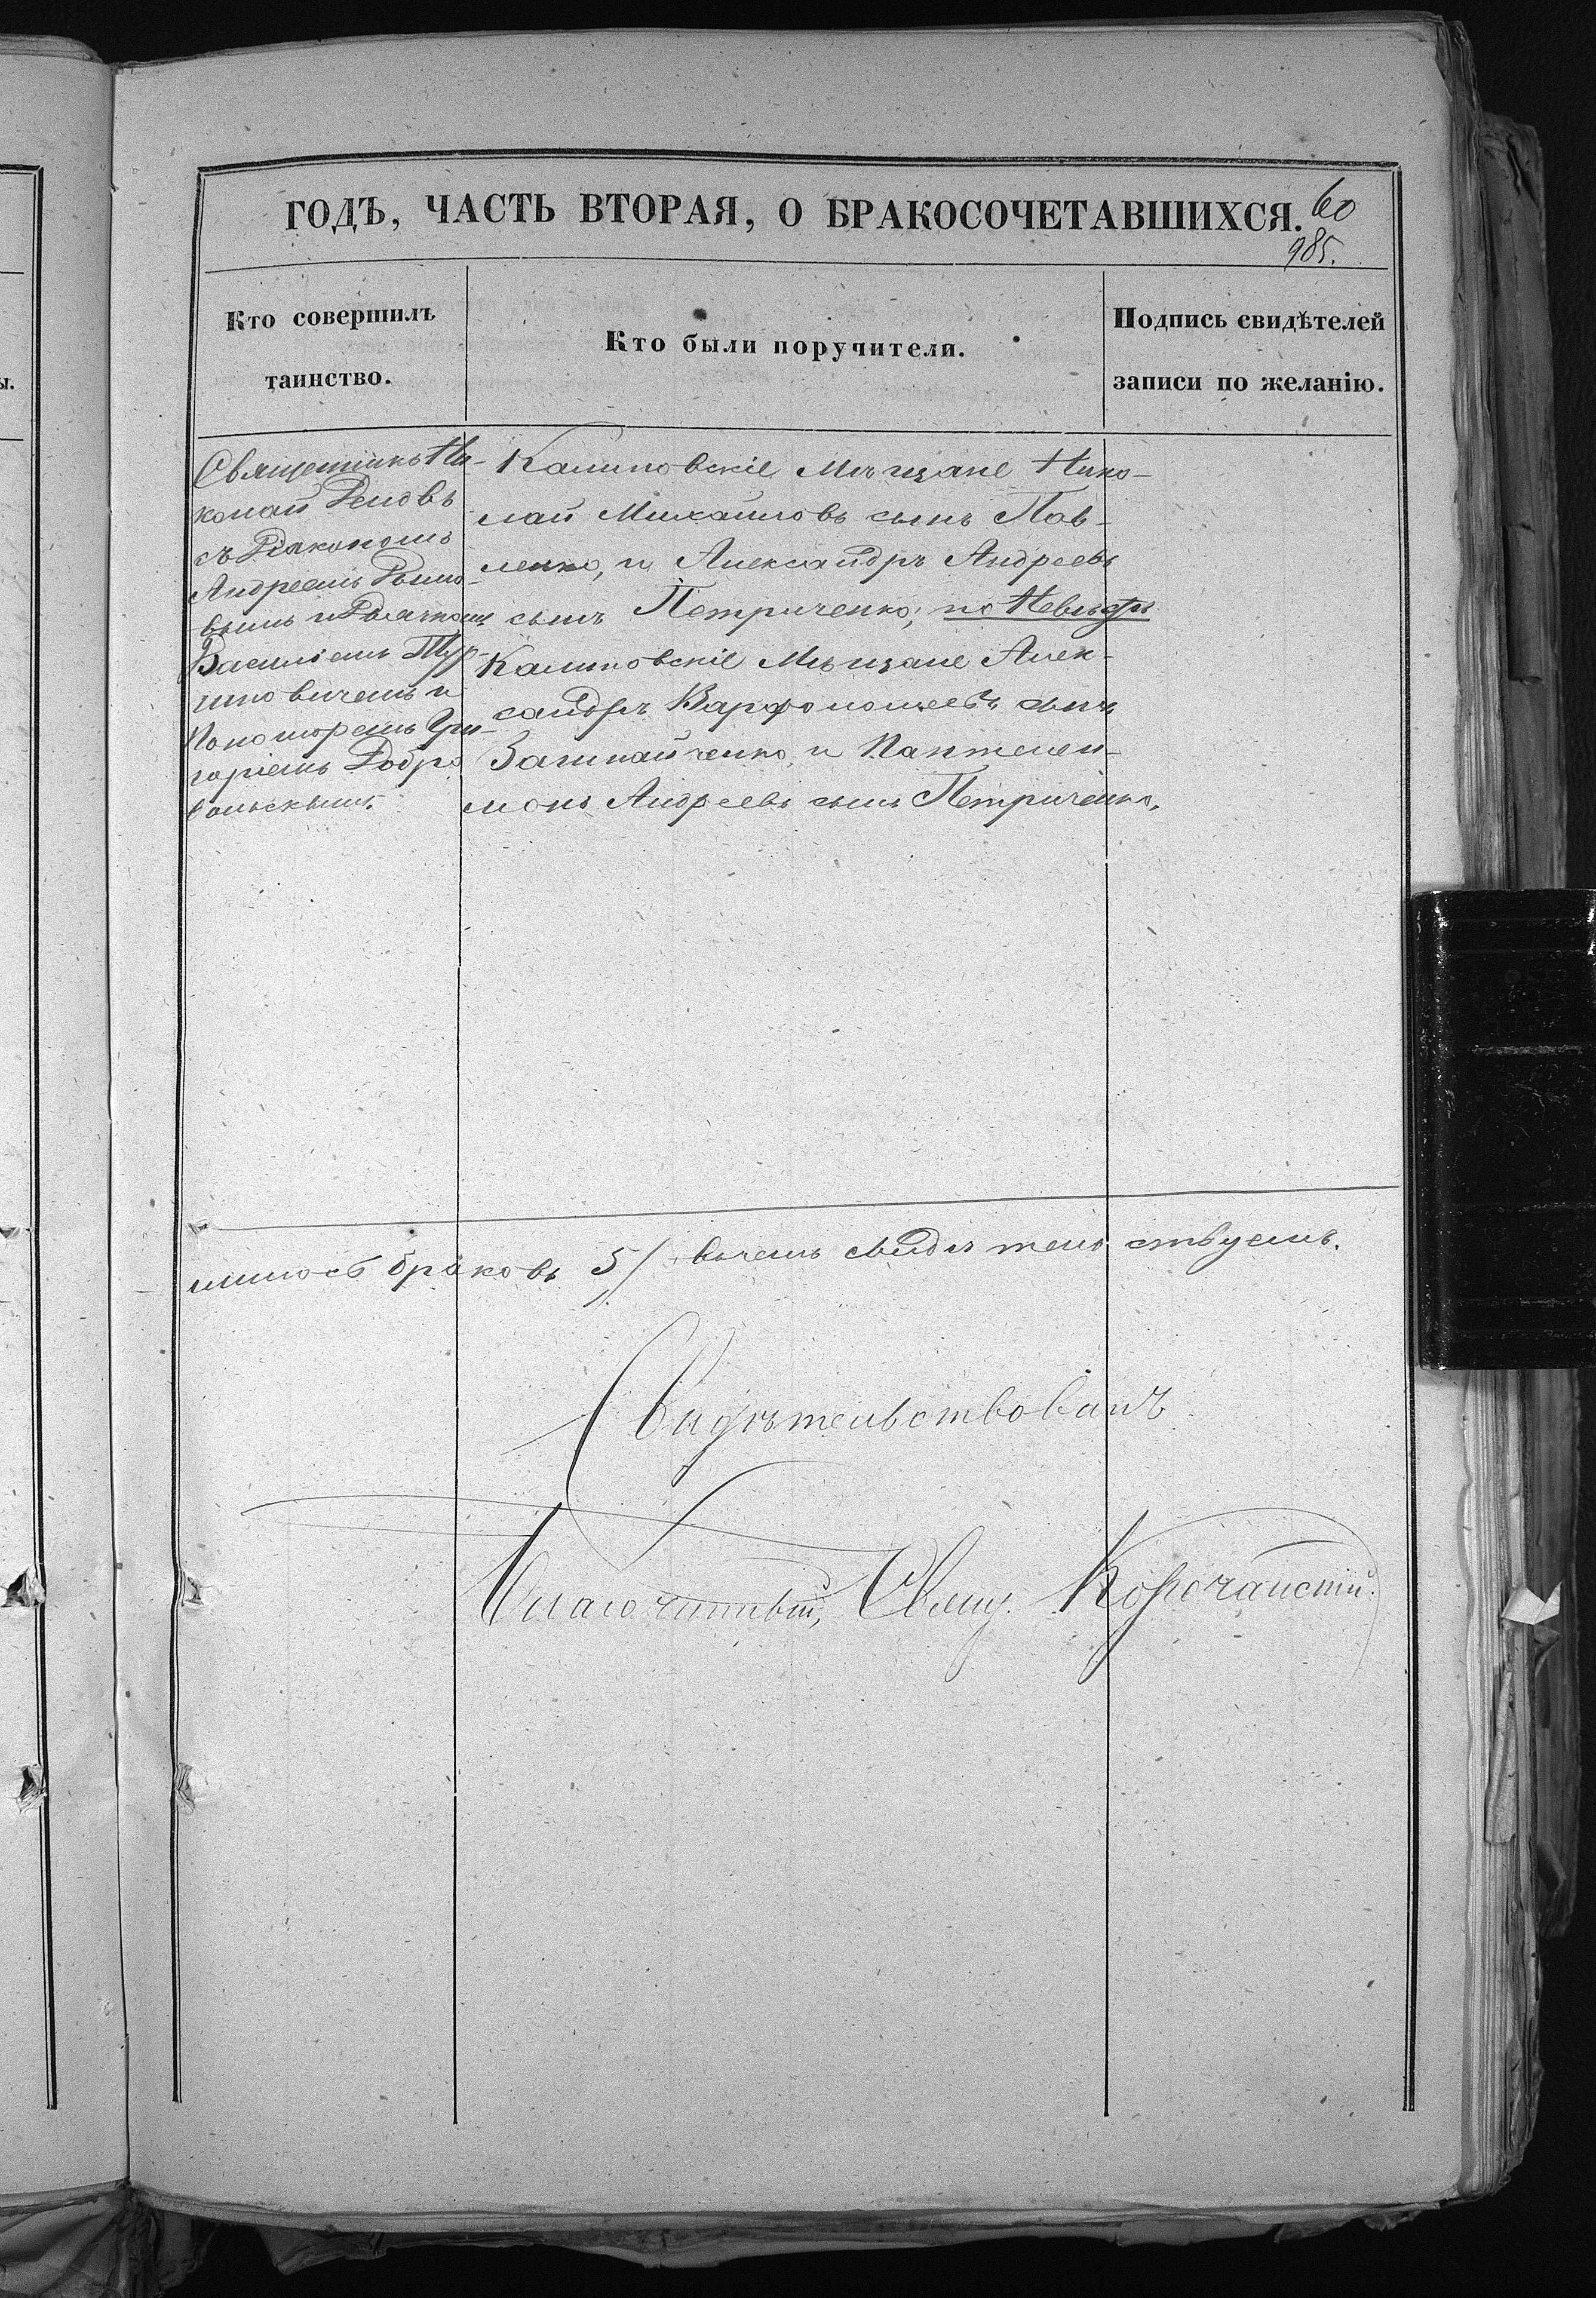 ы.
ГОДЪ, ЧАСТЬ ВТОРАЯ, О БРАКОСОЧЕТАВШИХСЯ.
60
985.
Кто совершилъ
таинство.
Кто были поручители.
Подпись свидѣтелей
записи по желанію.
Священникъ Ни-
колай
съ Діакономъ
Андреемъ
вымъ и Дьячкомъ
Василіемъ Тур-
иновичемъ и
Пономоремъ Гри-
горіемъ Добро
вольскимъ.
Калиновскіе Мѣщане Нико-
лай Михайловъ сынъ Пав-
ленко, и Александръ Андреевъ
сынъ Петриченко; по Невѣстѣ
Калиновскіе Мѣщане Алек-
сандръ Варфоломеевъ сынъ
и Пантелеи-
монъ Андреевъ сынъ Петриченко.
лилось браковъ 5/ вѣчемъ свидѣтельствуемъ.
Свидѣтельствовалъ
Благочинный, Свящ. Корочанскій.